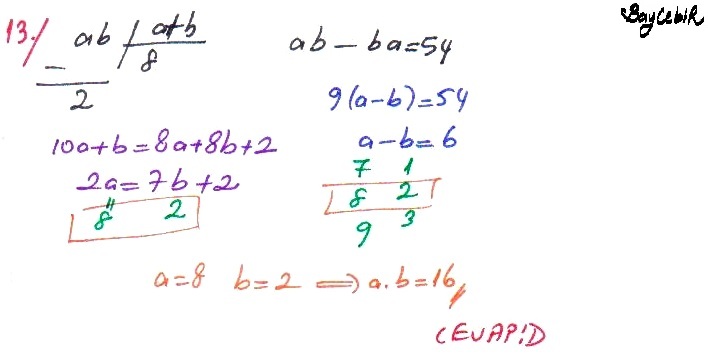 BayCebiR
13./ ab / a+b
8
2
ab - ba = 54
9(a-b) = 54
10a+b = 8a+8b+2
a-b = 6
2a = 7b+2
7 1
8 2
8 2
9 3
a=8 b=2 ⟹ a.b=16
CEVAP:D